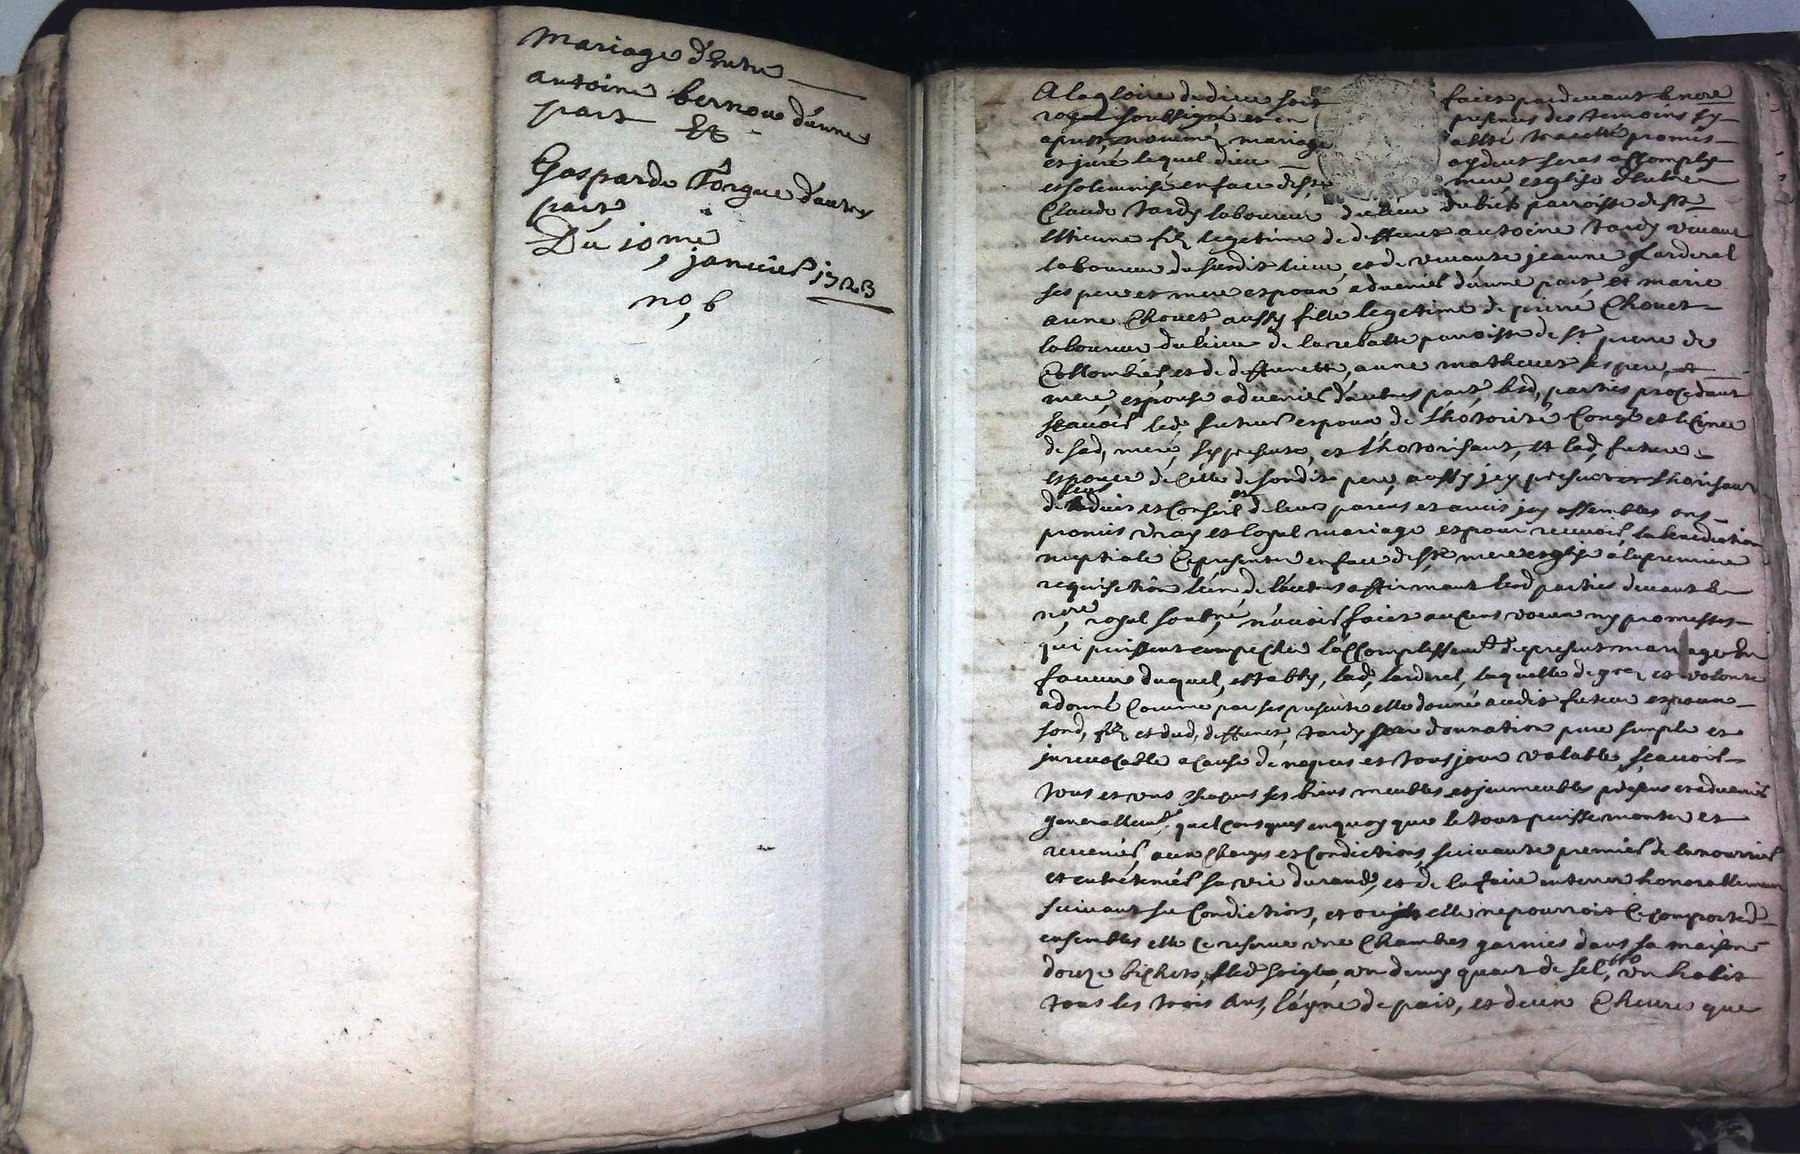 Mariage d'entre
antoine bernou d'une
part Et
Gasparde forgue d'autre
part
Du 10me janvier 1723
no, 6
A la gloire de dieu soit faict pardevant le nore
royal soubsigné et en presences des temoins sy
apres nommés mariage a esté traicté promis
et juré lequel dieu aydant seras assomply
et solemnisé en face de ste mere esglise Entre
Claude tardy laboureur du lieu du parroisse de st
Etienne fils legetime de deffunct antoine tardy vivant
laboureur du susdit lieu, et de vivante jeanne larderel
ses pere et mere espoux advenir d'une part et marie
anne Chovet aussy fille legetime de pierre Chovet
laboureur du lieu de la parroisse de st pierre de
Collombier, et de deffuncte anne matheuet ses pere et
mere, espouse advenir d'autres part, lesd, parties procedant
scavoir led, futur espoux de l'hotorité Congé et licence
de sad, mere, sy presente, et l'hotorisant, Et lad, future
espouse de Celle de sondit pere, aussy jcy present
et Conseil de leurs parens et amis jcy assemblés ons
promis vray et loyal mariage et pour recevoir la benediction
nuptiale Ce presenter en face de ste mere esglise a la premiere
requisition l'un de l'autres affirmant lesd parties devant le
nore, royal soubné, n'avoir faict aucuns voeux ny promesses
qui puissent empecher l'accomplissemt du present mariage En
faveur duquel, establis, lad, larderel, laquelle de gré et volonté
a donné Comme par ses presente elle donne audit futeur espoux
sond, fils et dud, deffunct, tardy par donnation pure simple et
jrrevocable a cause de nopces et tousjour valable scavoir
tous et uns chaquns ses biens meubles et jmmeubles presens et advenir
generallemt quelconques en quoy que le tout puisse monter et
revenir, aux Charges et Condictions suivante premier de la nourrir
et entretenir sa vie durand, et de la faire enterrer honorablement
suivant sa Condiction, et ou elle ne pourroit Ce comporter
ensembles elle Ce reserve une Chambres garnies dans sa maison
douze bichets, bled soigle, un demy quart de sel, un habit
tous les trois Ans, l'ayne de pais, et deux Chevres que